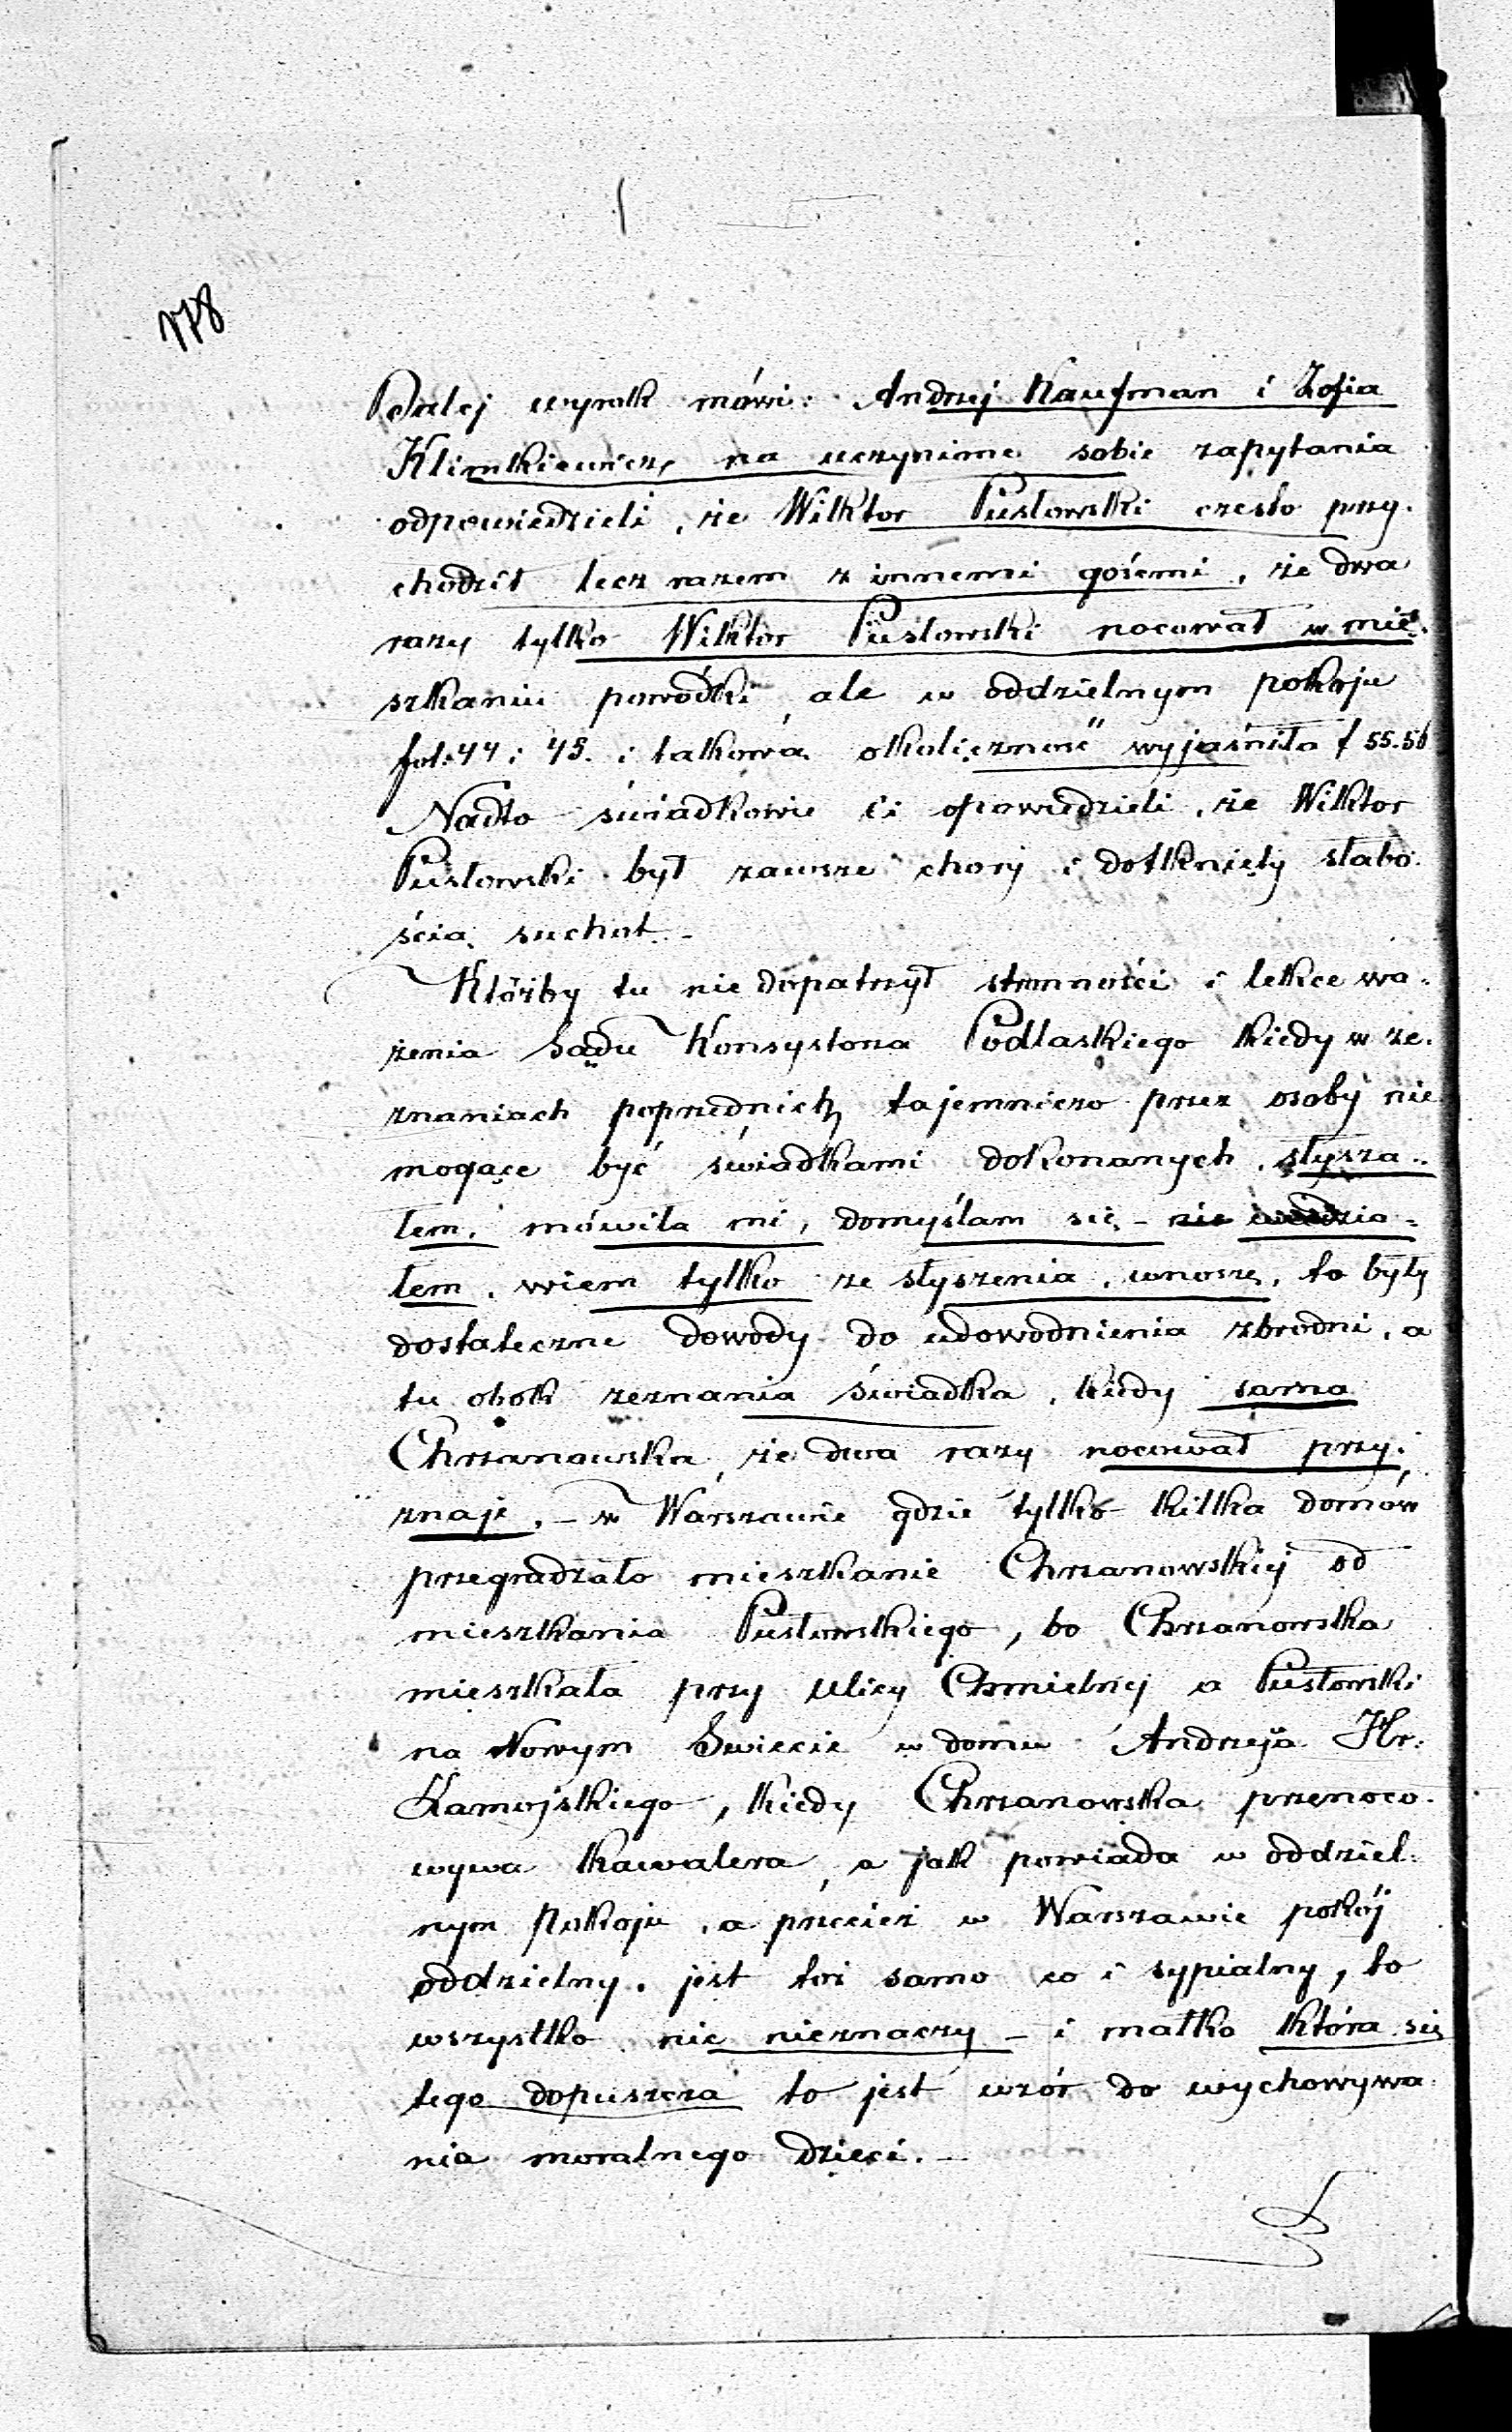 178
Dalej wyrok mówi: Andrzej Kaufman i Zofia
Klimkiewicz, na uczynime sobie zapytania
odpowiedzieli, że Wiktor Pusłowski często przy-
chodził lecz razem z innemi gośćmi, że dwa
razy tylko Wiktor Pusłowski nocował w mie-
szkaniu powódki, ale w oddzielnym pokoju
fol: 44 i 45. i takową okoliczność" wyjaśniła f 55.56
Nadto świadkowie ci opowiedzieli, że Wiktor
Pusłowski był zawsze chory i dotknięty słabo-
ścią suchot.-
Któżby tu nie dopatrzył stronności i lekce wa-
żenia Sądu Konsystorza Podlaskiego kiedy w ze-
znaniach poprzednich, tajemniczo przez osoby nie
mogące być świadkami dokonanych, słysza-
łem, mówiła mi, domyślam się - nie widzia-
łem, wiem tylko ze słyszenia, wnoszę, to były
dostateczne dowody do udowodnienia zbrodni, a
tu obok zeznania świadka, kiedy sama
Chrzanowska, że dwa razy nocował przy-
znaje, - w Warszawie gdzie tylko kilka domów
przegradzało mieszkanie Chrzanowskiej od
mieszkania Pusłowskiego, bo Chrzanowska
mieszkała przy ulicy Chmielnej a Pusłowski
na Nowym Swiecie w domu Andrzeja Hr.
Zamojskiego, kiedy Chrzanowska przenoco-
wywa kawalera, a jak powiada w oddziel-
nym Pokoju, a przecież w Warszawie pokój
oddzielny, jest toż samo co i sypialny, to
wszystko nic nieznaczy - i matko która się
tego dopuszcza to jest wzór do wychowywa-
nia moralnego dzieci.-